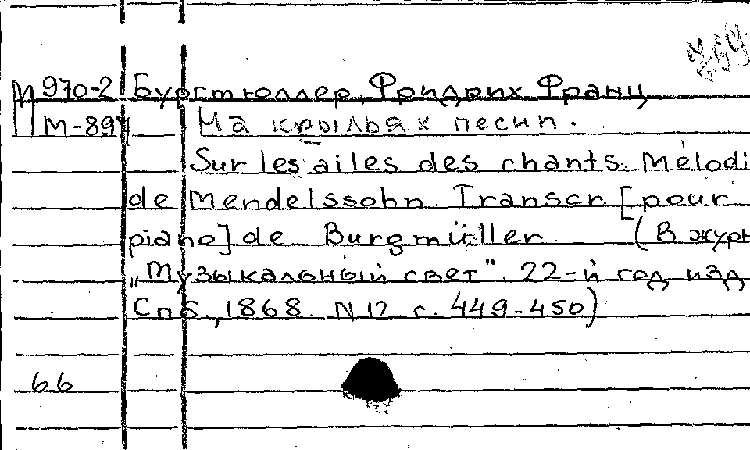 М 970-2 Бургмюллер, Фридрих Франц
М-891 На крыльях песни.
Sur les ailes des chants. Mélodi
de Mendelssohn. Transcr [pour
piano] de Burgmüller (В журн
„Музыкальный свет". 22-й год изд
Спб., 1868. N 12 с. 449-450)
66